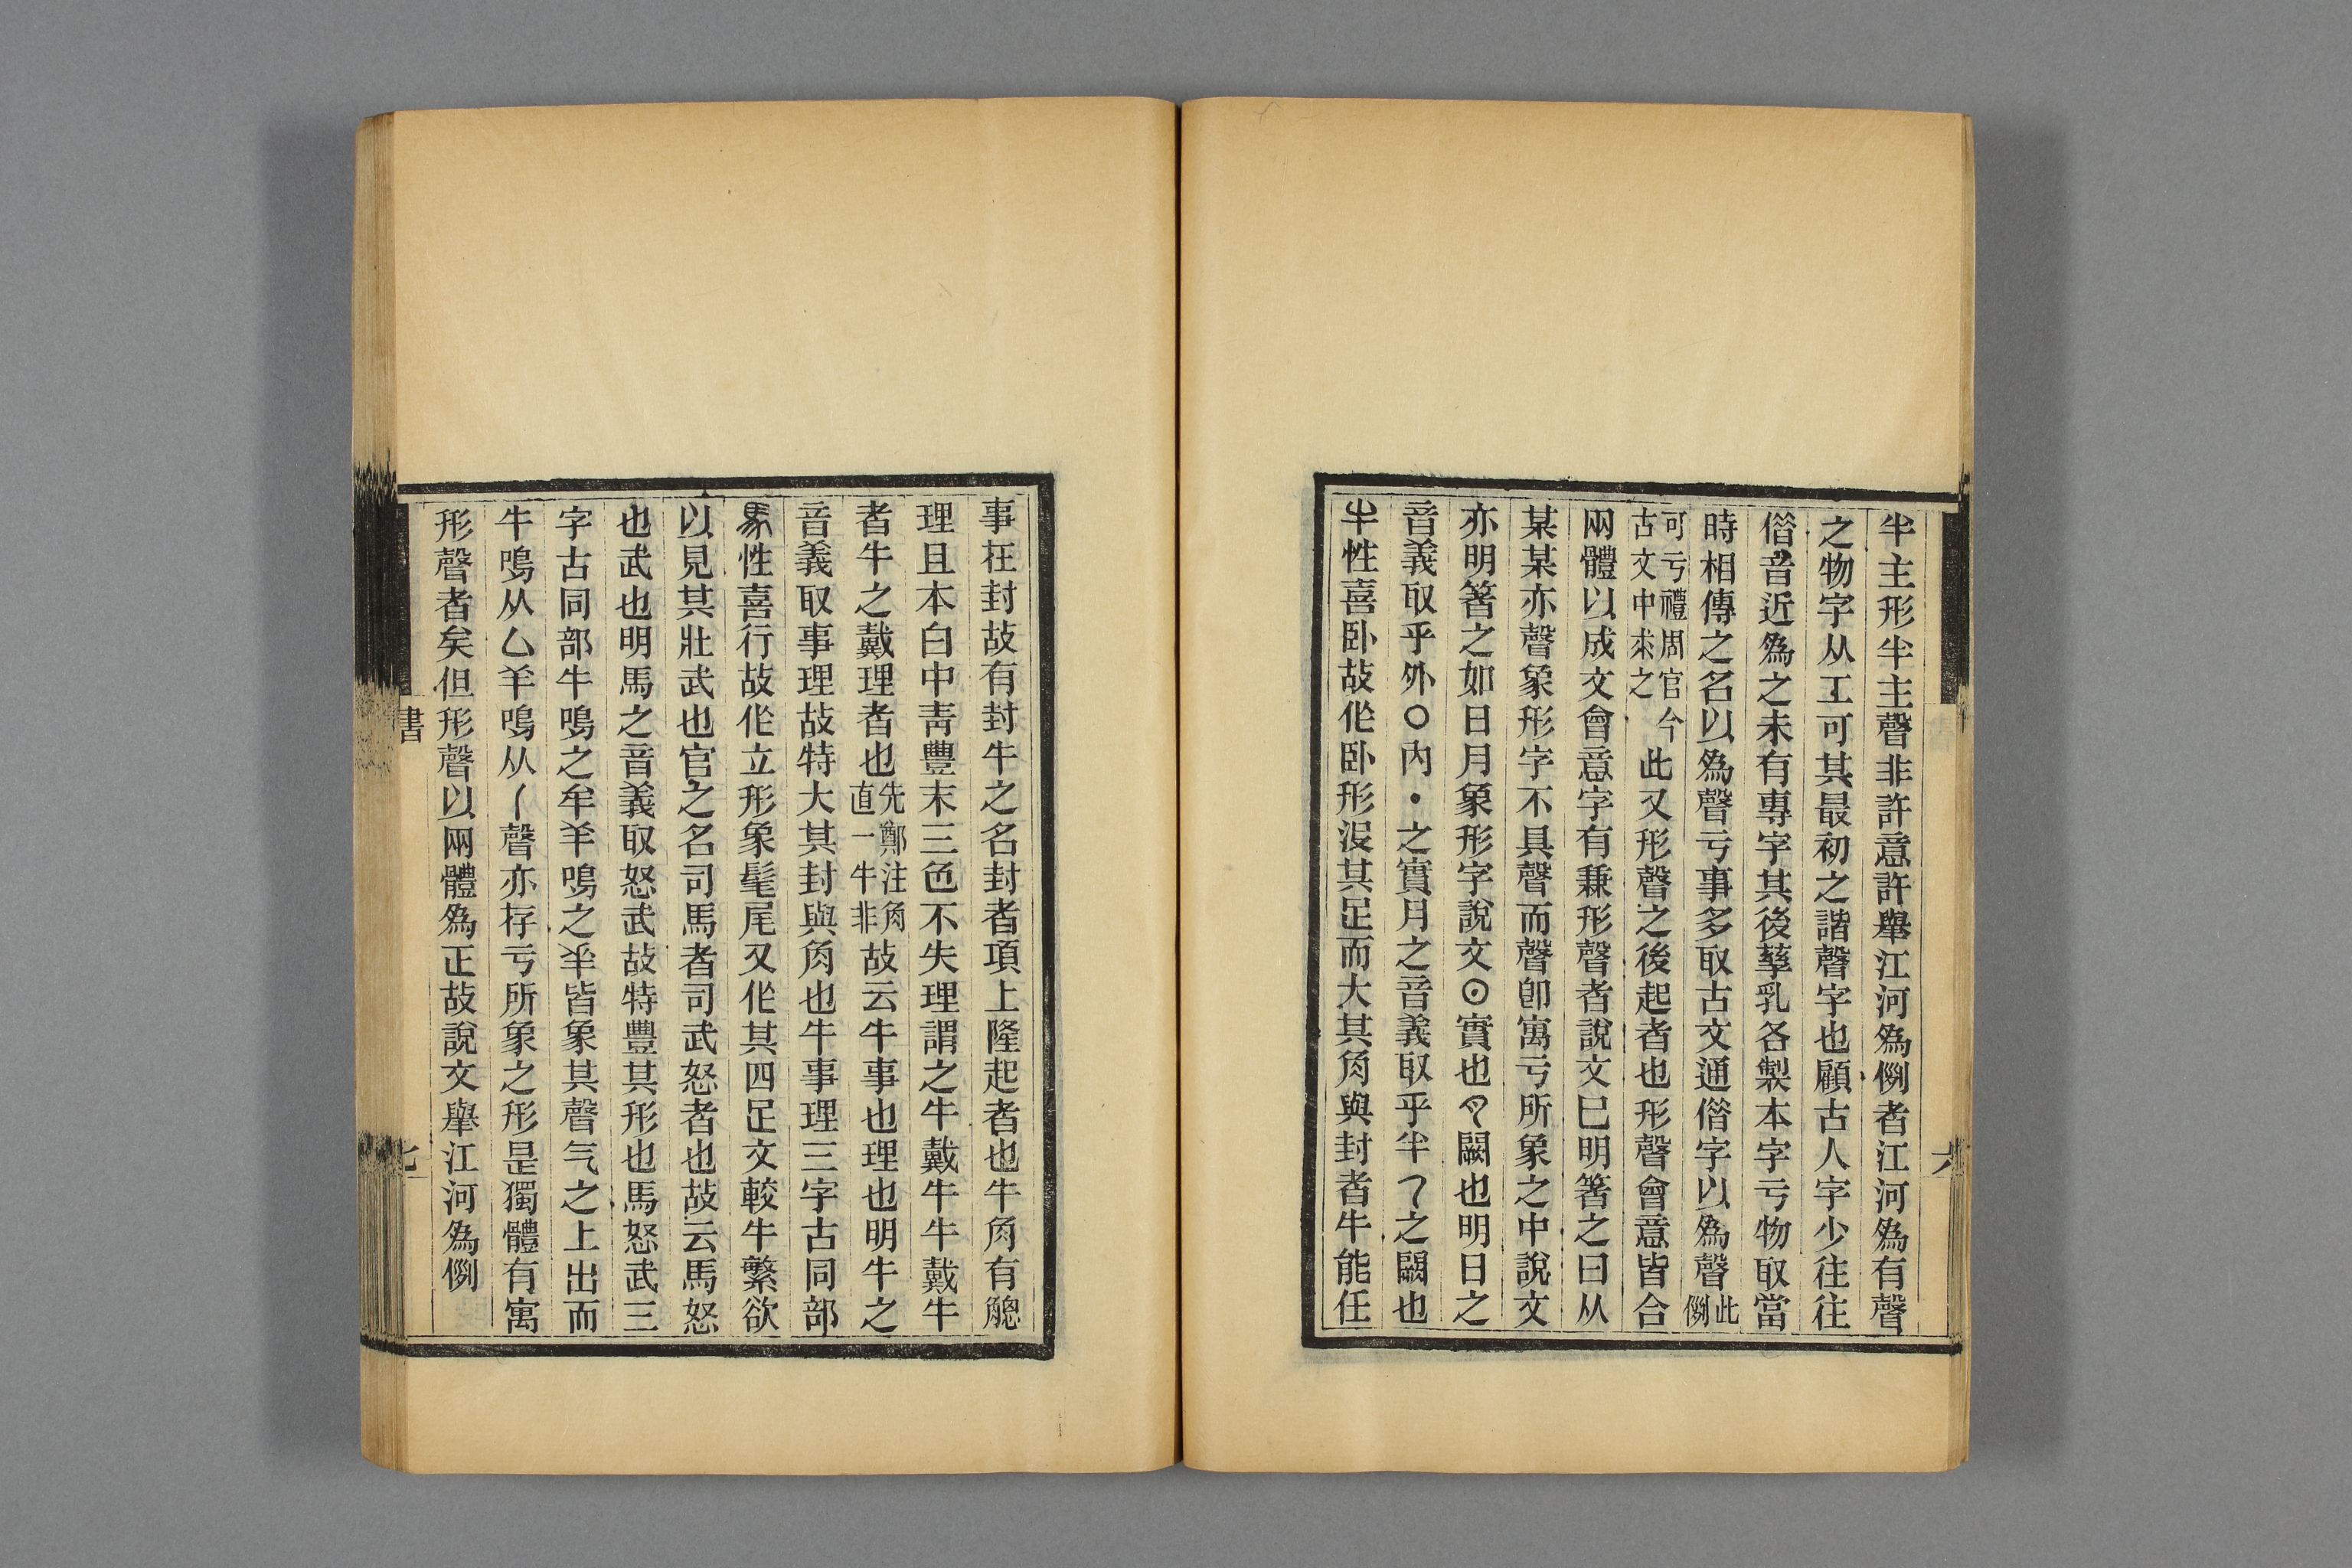 半主形半主聲非許意許舉江河爲例者江河爲有聲
之物字从工可其最初之諧聲字也顧古人字少往往
借音近爲之未有專字其後孳乳各製本字亏物取當
時相傳之名以爲聲亏事多取古文通借字以爲聲此例
可亏禮周官今古文中求之此又形聲之後起者也形聲會意皆合
兩體以成文會意字有兼形聲者說文已明箸之曰从
某某亦聲象形字不具聲而聲卽寓亏所象之中說文
亦明箸之如日月象形字說文⊙實也闕也明日之
音義取乎外○內・之實月之音義取乎半之闕也
牛性喜臥故作臥形沒其足而大其角與封者牛能任
六
事在封故有封牛之名封者項上隆起者也牛角有䚡
理且本白中靑豐末三色不失理謂之牛戴牛牛戴牛
者牛之戴理者也先鄭注角直一牛非故云牛事也理也明牛之
音義取事理故特大其封與角也牛事理三字古同部
馬性喜行故作立形象髦尾又作其四足文較牛繁欲
以見其壯武也官之名司馬者司武怒者也故云馬怒
也武也明馬之音義取怒武故特豐其形也馬怒武三
字古同部牛鳴之牟羊鳴之羋皆象其聲气之上出而
牛鳴从厶羊鳴从丨聲亦存亏所象之形是獨體有寓
形聲者矣但形聲以兩體爲正故說文舉江河爲例
書
七